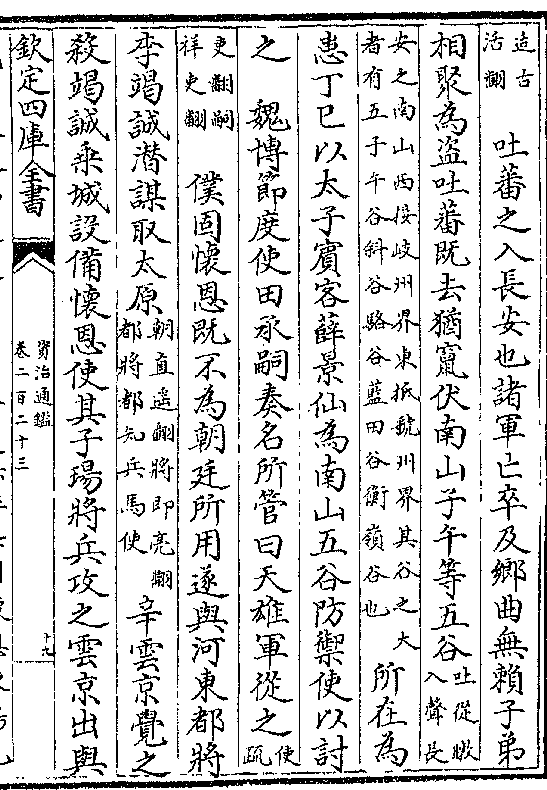 适古
活翻
吐蕃之入長安也諸軍亡卒及鄉曲無賴子弟
相聚為盜吐蕃既去猶竄伏南山子午等五谷
吐從暾
入聲長
安之南山西接岐州界東抵虢州界其谷之大
者有五子午谷斜谷駱谷藍田谷衡嶺谷也
所在為
患丁巳以太子賓客薛景仙為南山五谷防禦使以討
之　魏博節度使田承嗣奏名所管曰天雄軍從之
使
疏
吏翻嗣
祥吏翻
僕固懷恩既不為朝廷所用遂與河東都將
李竭誠潛謀取太原
朝直遥翻將即亮翻
都將都知兵馬使
辛雲京覺之
殺竭誠乘城設備懷恩使其子瑒將兵攻之雲京出與
欽定四庫全書
資治通鑑
卷二百二十三
十九